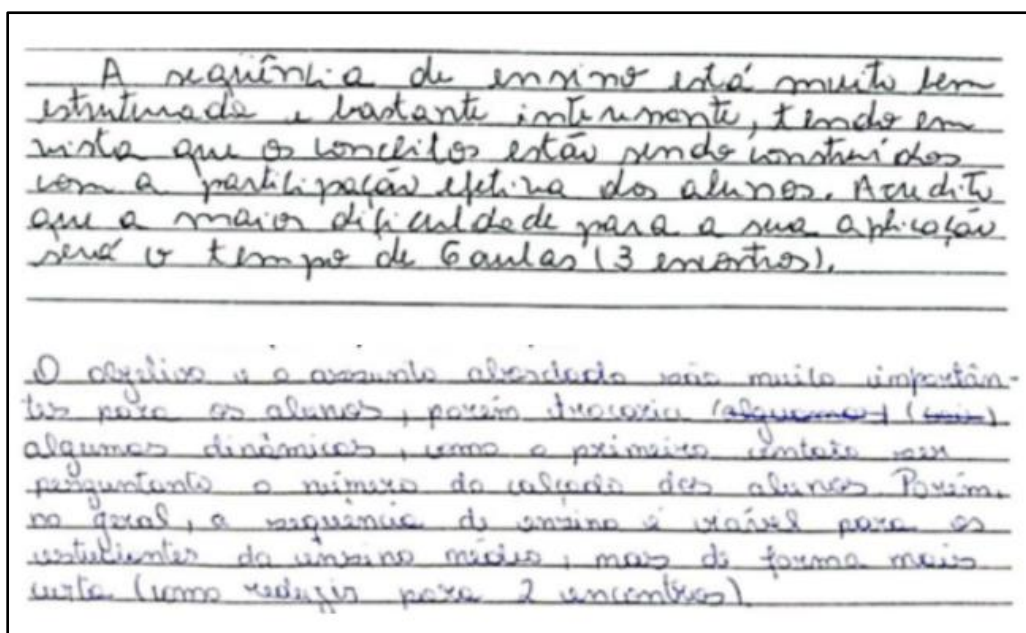 A seqüência de ensino está muito bem
estruturada e bastante interessante, tendo em
vista que os conceitos estão sendo construídos
com a participação efetiva dos alunos. Acredito
que a maior dificuldade para a sua aplicação
será o tempo de 6 aulas (3 encontros).
O objetivo e o assunto abordado são muito importân-
tes para os alunos, porém trocaria (algumas) (seis)
algumas dinâmicas, como o primeiro contato ser
perguntanto o número do calçado dos alunos. Porém,
no geral, a sequência de ensino é viável para os
estudantes do ensino médio, mas de forma mais
curta (como reduzir para 2 encontros).